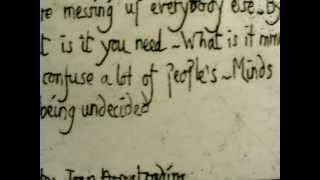 re messing up everybody else ~ By
t is it you need ~ What is it imm
confuse a lot of people's ~ Minds
being undecided
by Joan Armatrading